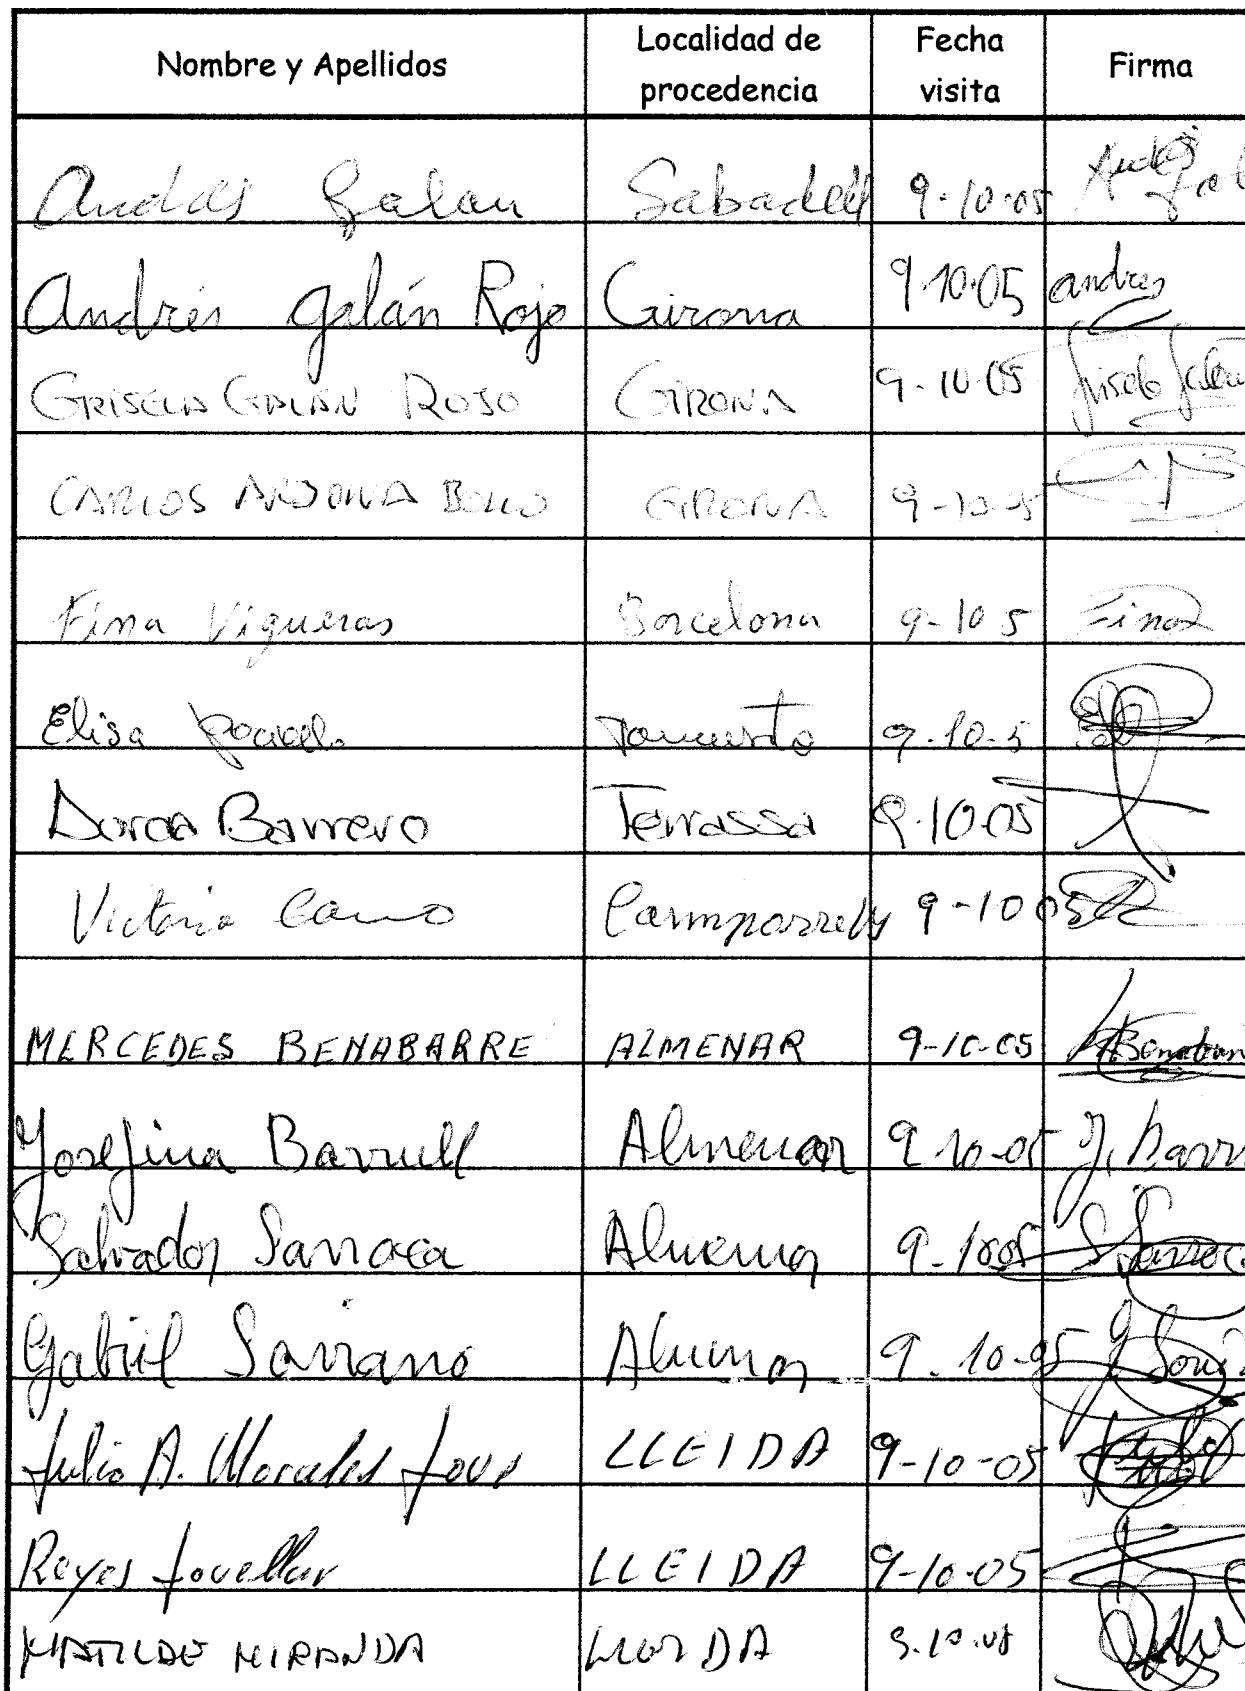 Nombre y Apellidos Localidad de procedencia Fecha visita Firma
Andrés Galan Sabadell 9-10-05 Andrés Gal
Andrés Galán Rojo Girona 9-10-05 andres
GRISELA GALÁN ROJO GIRONA 9-10-05
CARLOS ARJONA GIRONA 9-10-05
Fina Vigueras Barcelona 9-10 5 Fina
Elisa 9-10-5
Barrero Terrassa 9-10-05
Victoria Cano 9-10 05
MERCEDES BENABARRE ALMENAR 9-10-05
Josefina Barrull Almenar 9 10-05 J. Barru
Salvador Sarroca Almenar 9-10 05 S Sarroca
Gabriel Almenar 9-10-05
Julio A. Morales LLEIDA 9-10-05
Reyes Jovellar LLEIDA 9-10-05
MATILDE MIRANDA 9-10-05